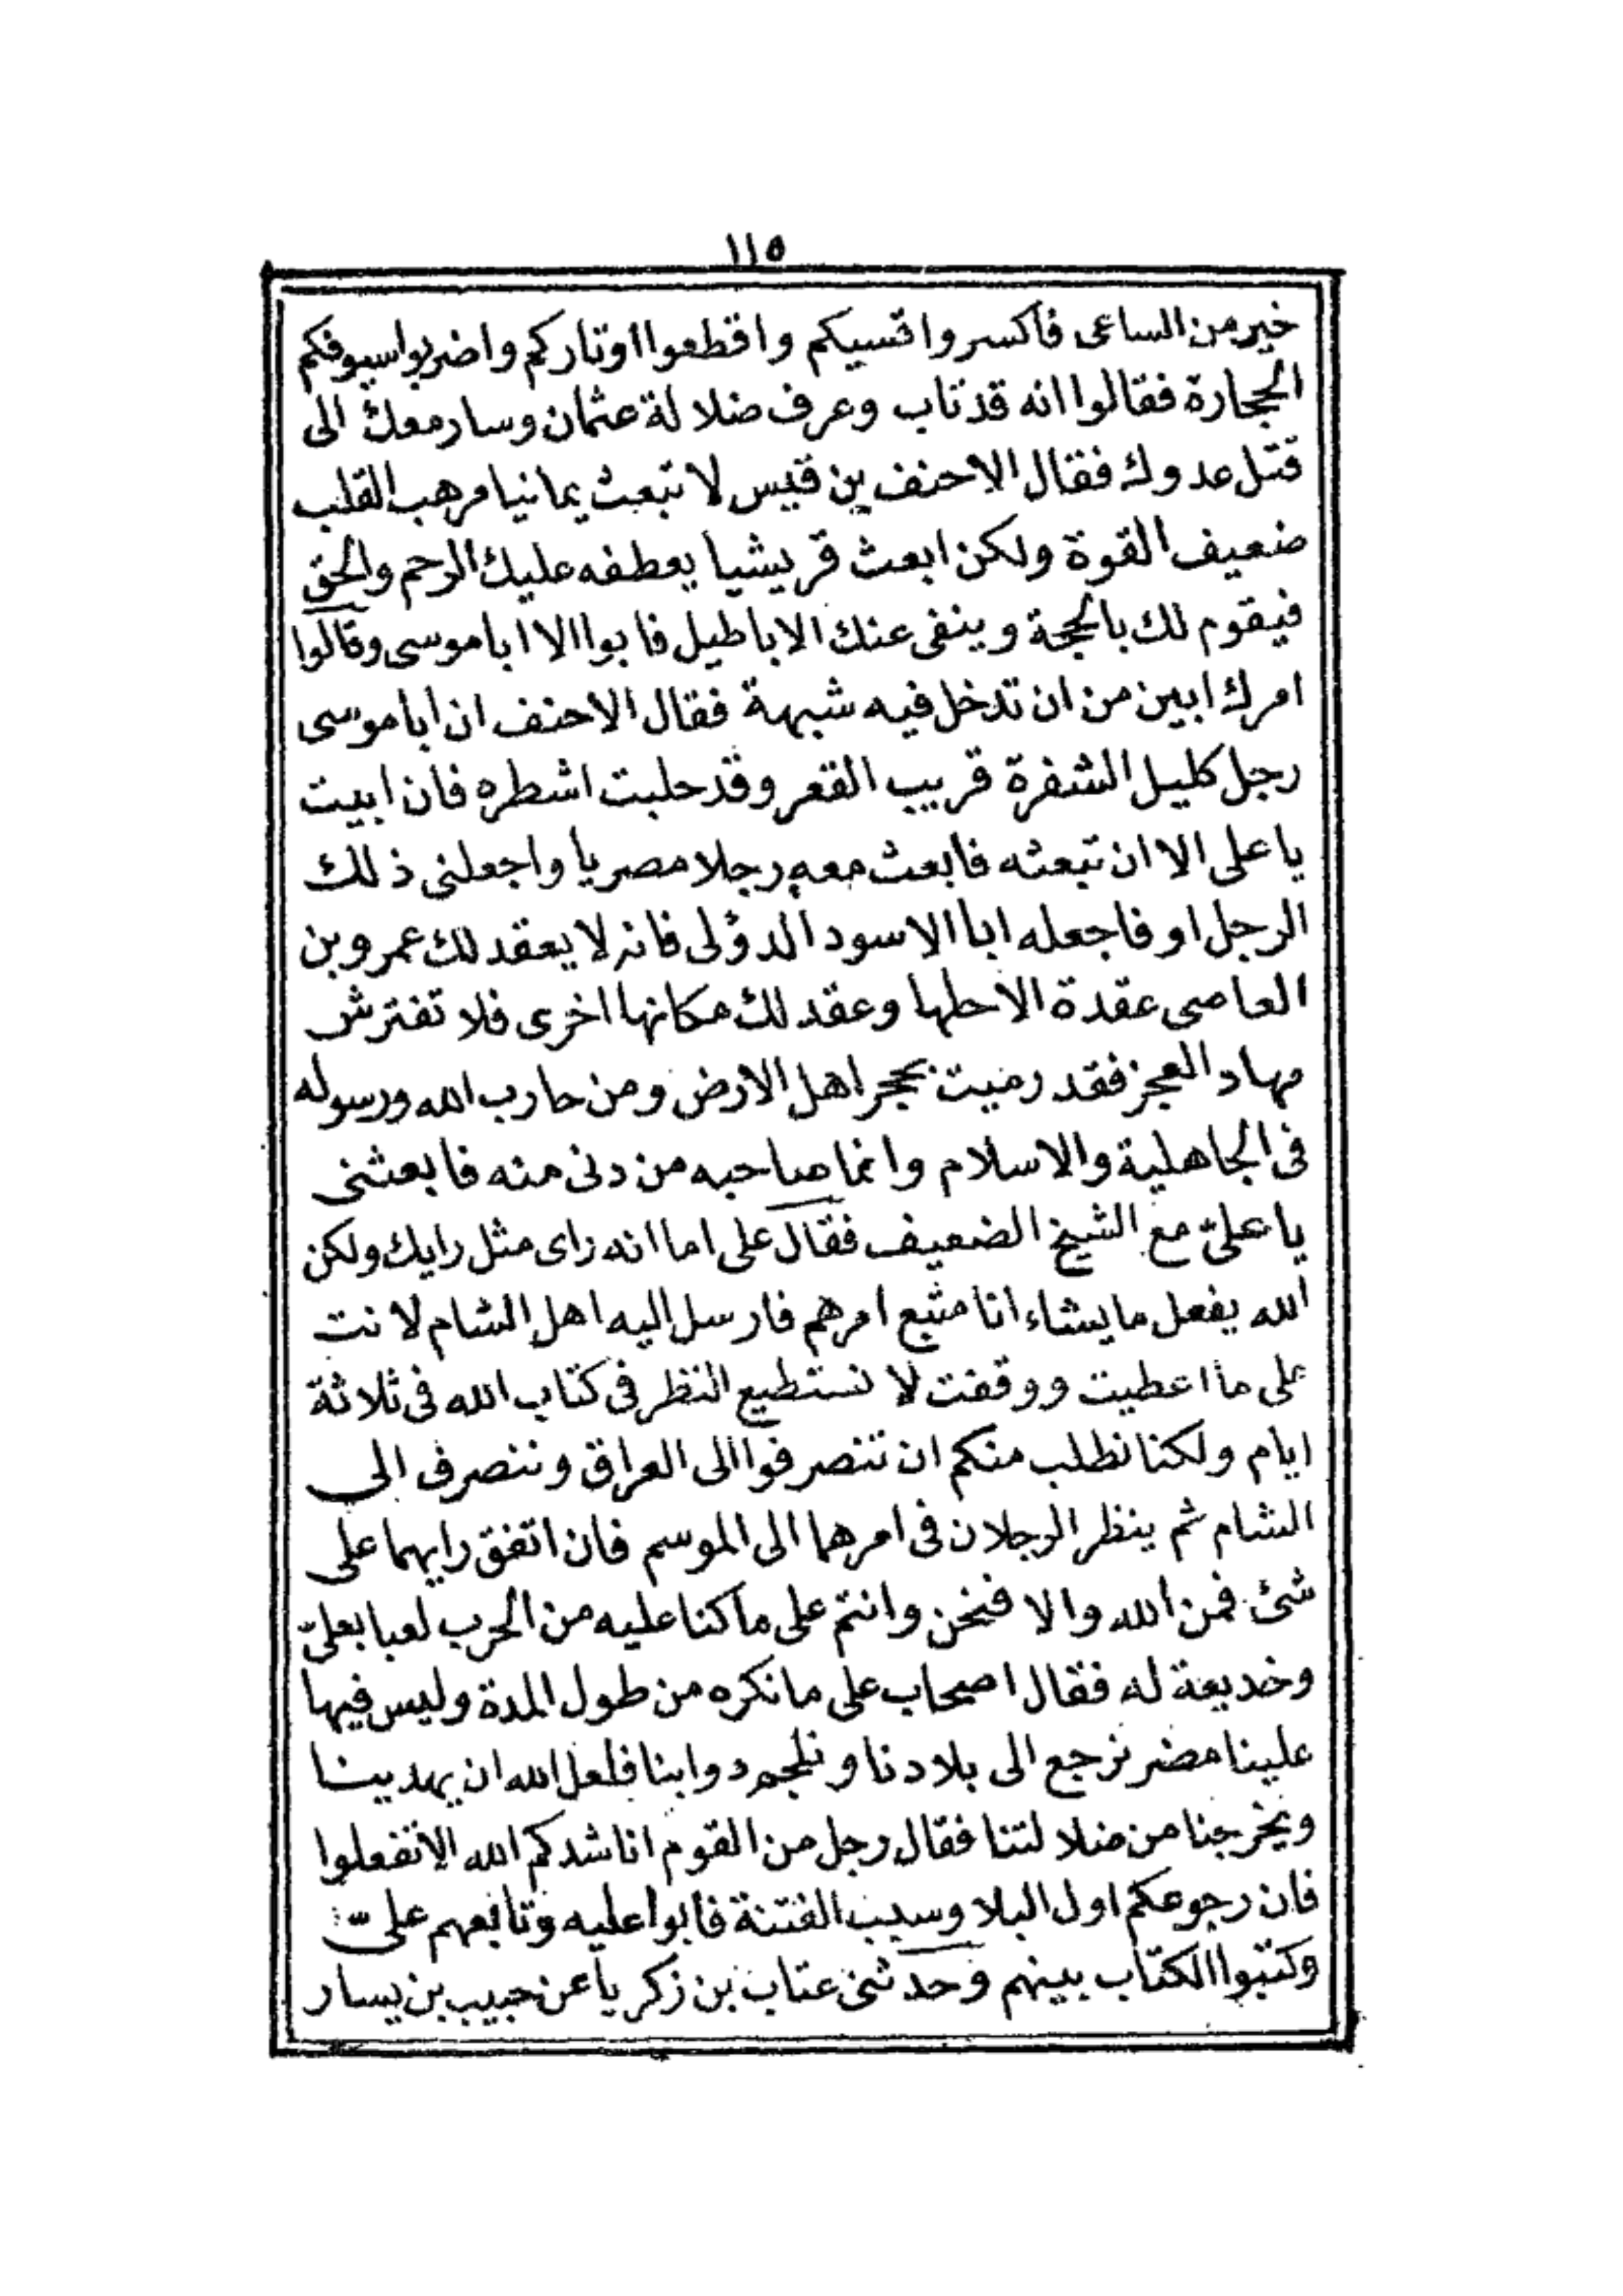 ١١٥
خير من الساعى فاكسروا قسيكم واقطعوا اوتاركم واضربوا سيوفكم
الحجارة فقالوا انه قد تاب وعرف ضلالة عثمان وسار معك الى
قتل عدوك فقال الاحنف بن قيس لا تبعث يمانيا مرهب القلب
ضعيف القوة ولكن ابعث قريشيا يعطفه عليك الرحم والحق
فيقوم لك بالحجة وينفى عنك الاباطيل فابوا الا ابا موسى وقالوا
امرك ابين من ان تدخل فيه شبهة فقال الاحنف ان ابا موسى
رجل كليل الشفرة قريب القعر وقد حلبت اشطره فان ابيت
يا على الا ان تبعثه فابعث معه رجلا مصريا واجعلنى ذلك
الرجل او فاجعله ابا الاسود الدؤلى فانه لا يعقد لك عمرو بن
العاصى عقدة الا حلها وعقد لك مكانها اخرى فلا تفترش
مهاد العجز فقد رميت بحجر اهل الارض ومن حارب الله ورسوله
فى الجاهلية والاسلام وانما صاحبه من دنى منه فابعثنى
يا علىّ مع الشيخ الضعيف فقال على اما انه راى مثل رايك ولكن
الله يفعل ما يشاء انا متبع امرهم فارسل اليه اهل الشام لا نت
على ما اعطيت ووقفت لا نستطيع النظر فى كتاب الله فى ثلاثة
ايام ولكنا نطلب منكم ان تنصرفوا الى العراق وننصرف الى
الشام ثم ينظر الرجلان فى امرهما الى الموسم فان اتفق رايهما على
شئ فمن الله والا فنحن وانتم على ما كنا عليه من الحرب لعبا بعلىّ
وخديعة له فقال اصحاب على ما نكره من طول المدة وليس فيها
علينا مضر نرجع الى بلادنا ونلجم دوابنا فلعل الله ان يهدينا
ويخرجنا من ضلالتنا فقال رجل من القوم اناشدكم الله الا تفعلوا
فان رجوعكم اول البلا وسبب الفتنة فابوا عليه وتابعهم علىّ
وكتبوا الكتاب بينهم وحدثنى عتاب بن زكريا عن حبيب بن يسار